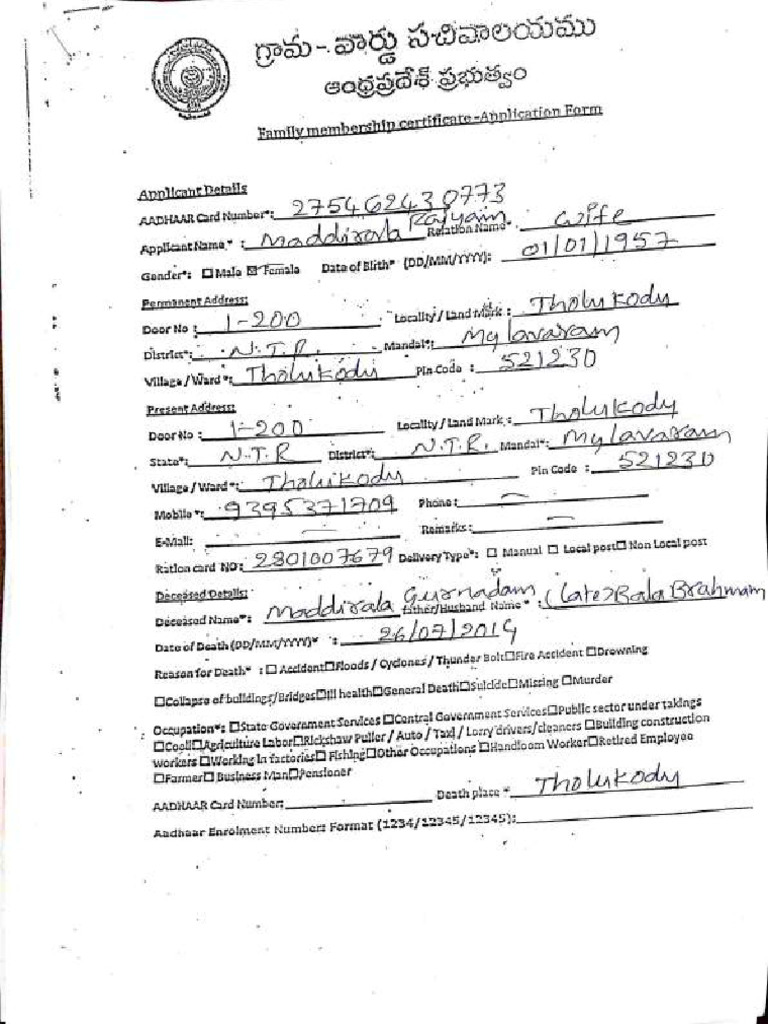 గ్రామ - వార్డు సచివాలయము
ఆంధ్రప్రదేశ్ ప్రభుత్వం
Family membership certificate -Application Form
Applicant Details
AADHAAR Card Number*: 275462430773
Applicant Name* : Maddirala Rajyam Relation Name* Wife
Gender*: ☐ Male ☒ Female Date of Birth* (DD/MM/YYYY): 01/01/1957
Permanent Address:
Door No : 1-200 Locality / Land Mark : Tholukody
District*: N.T.R. Mandal*: Mylavaram
Village / Ward *: Tholukody Pin Code : 521230
Present Address:
Door No : 1-200 Locality / Land Mark : Tholukody
State*: N.T.R District*: N.T.R. Mandal*: Mylavaram
Village / Ward *: Tholukody Pin Code : 521230
Mobile *: 9395371709 Phone: —
E-Mail: — Remarks: —
Ration card NO: 2801007679 Delivery Type*: ☐ Manual ☐ Local post ☐ Non Local post
Deceased Details:
Deceased Name*: Maddirala Gurnadam Father/Husband Name* : (Late) Bala Brahmam
Date of Death (DD/MM/YYYY)* : 26/07/2019
Reason for Death* : ☐ Accident ☐ Floods / Cyclones / Thunder Bolt ☐ Fire Accident ☐ Drowning
☐ Collapse of buildings/Bridges ☐ Ill health ☐ General Death ☐ Suicide ☐ Missing ☐ Murder
Occupation*: ☐ State Government Services ☐ Central Government Services ☐ Public sector under takings
☐ Cooli ☐ Agriculture Labor ☐ Rickshaw Puller / Auto / Taxi / Lorry drivers/cleaners ☐ Building construction
workers ☐ Working in factories ☐ Fishing ☐ Other Occupations ☐ Handloom Worker ☐ Retired Employee
☐ Farmer ☐ Business Man ☐ Pensioner
AADHAAR Card Number: Death place * Tholukody
Aadhaar Enrolment Number: Format (1234/12345/12345):